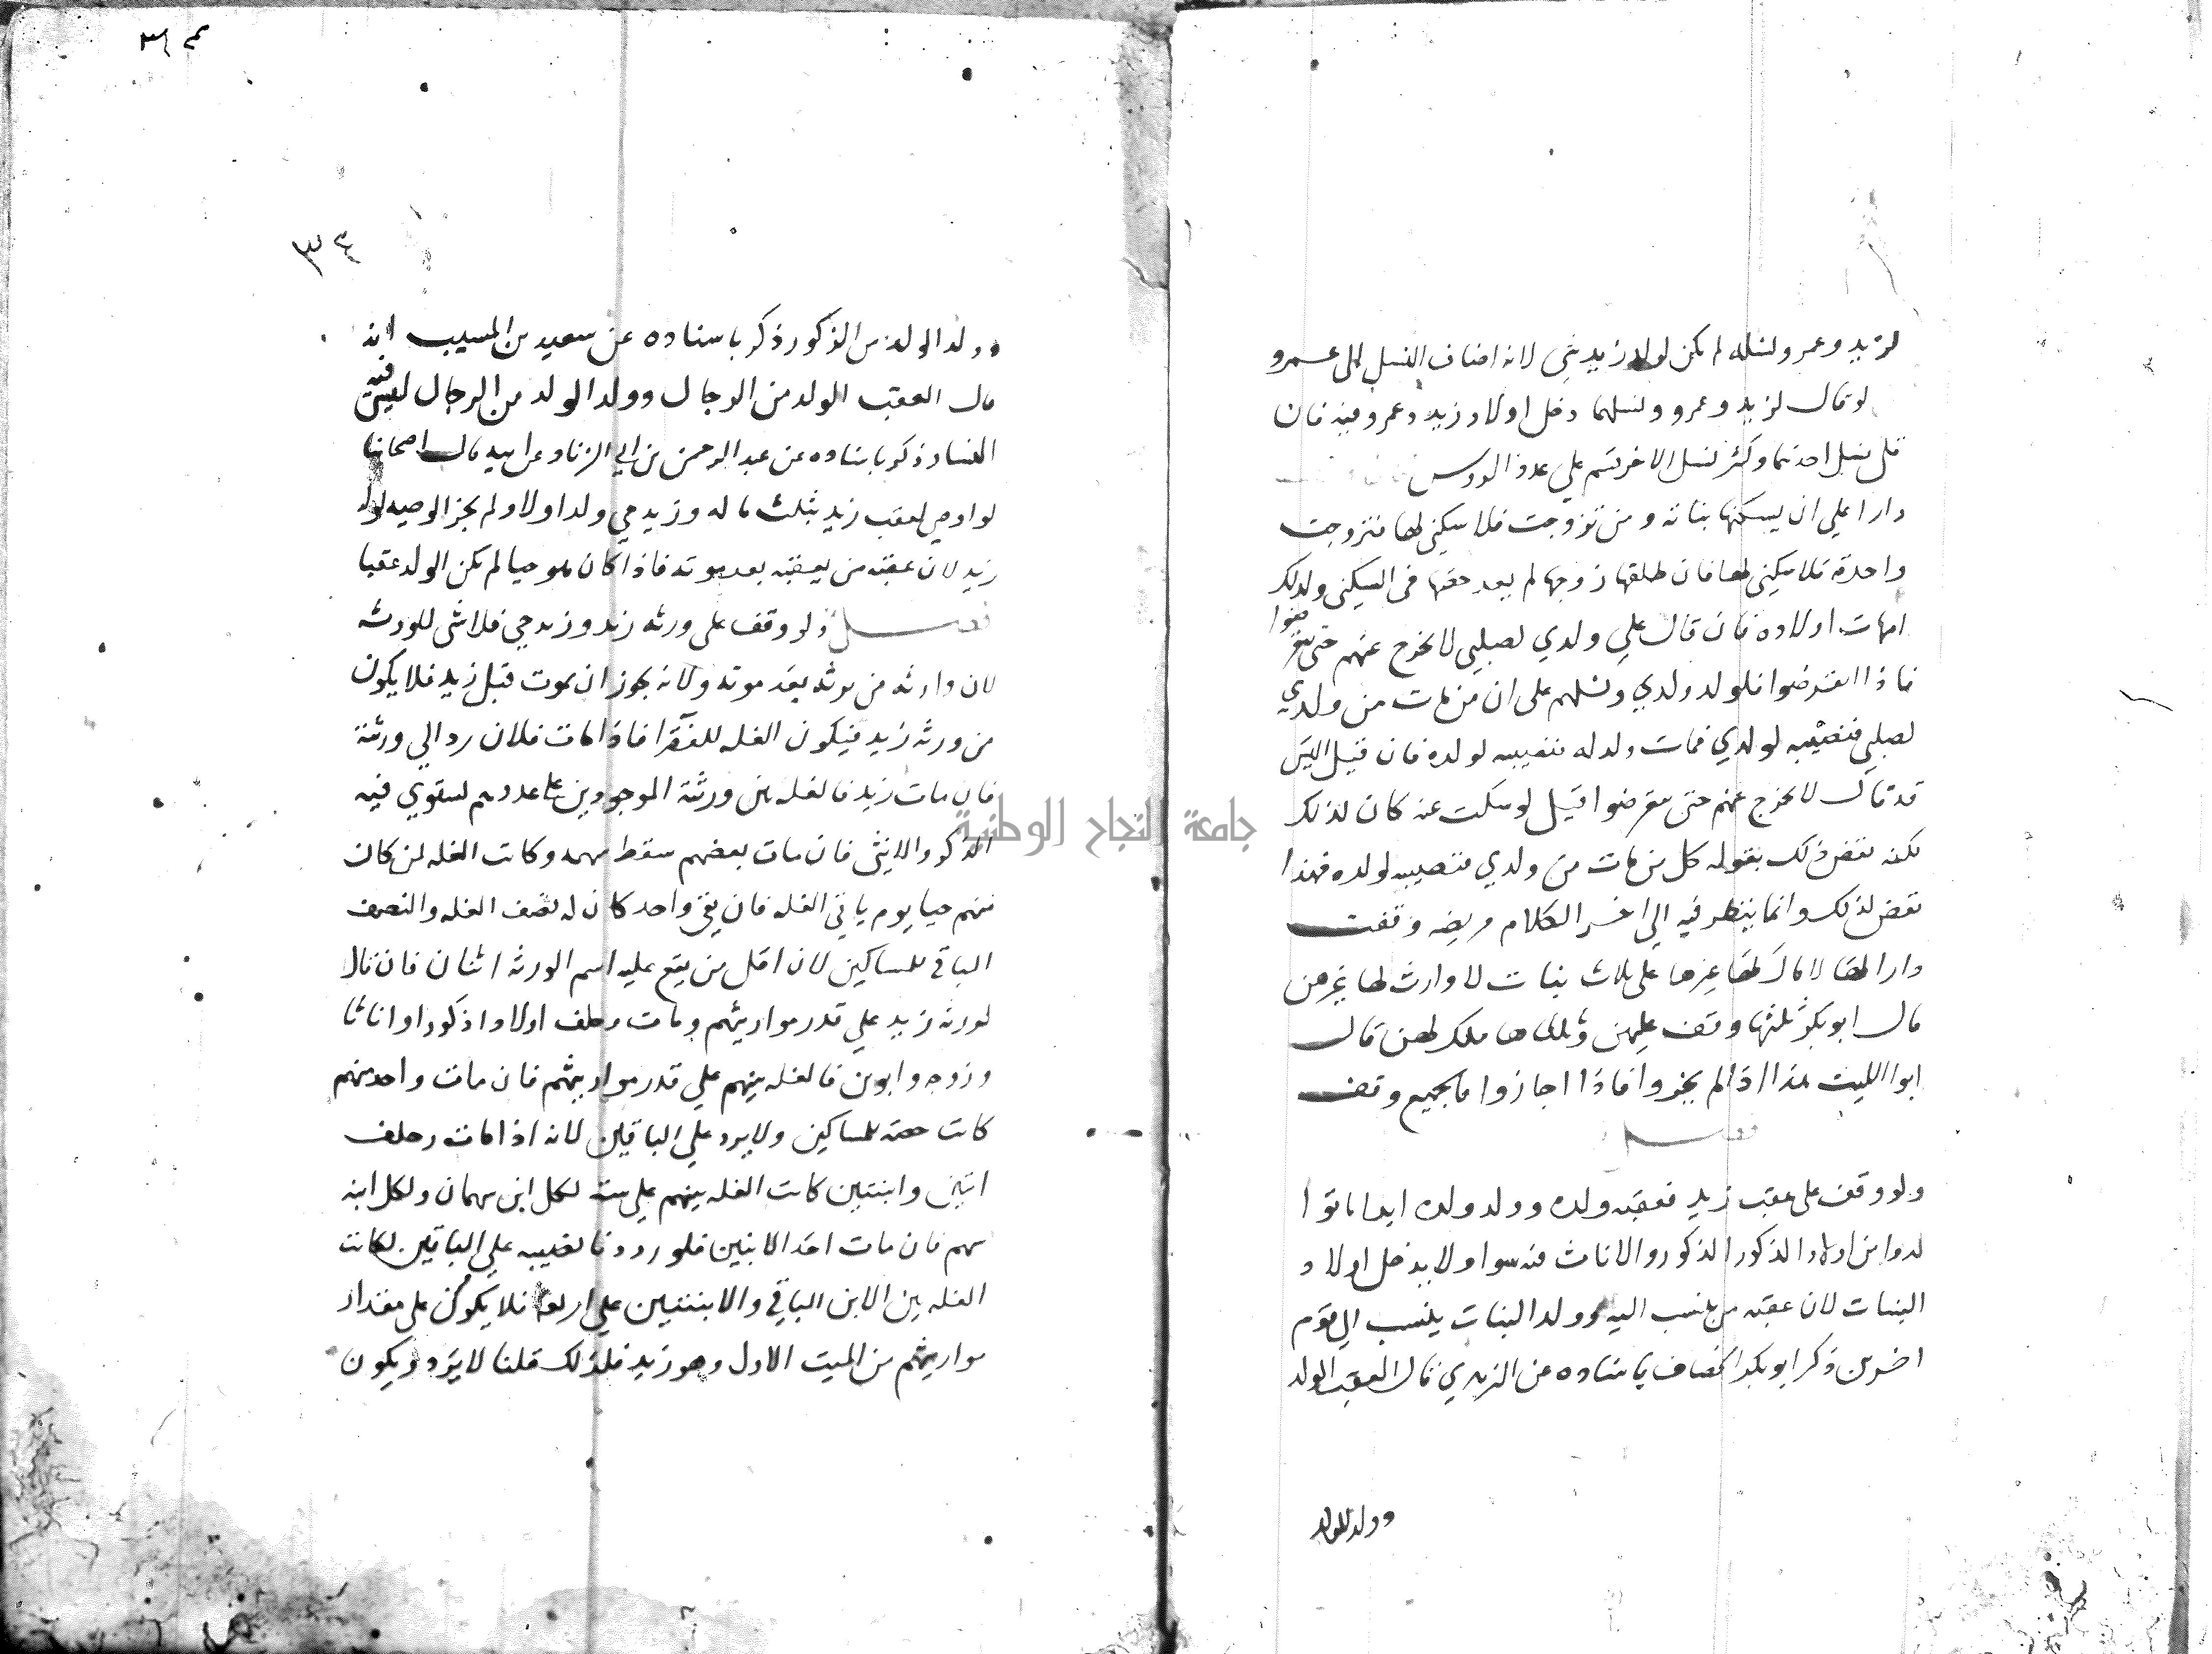 لزيد وعمرو ولنسله لم يكن لولد زيد شي لانه اضاف النسل الى عمرو
لو قال لزيد وعمرو ولنسلهما دخل اولاد زيد وعمرو فيه فان
قل نسل احدهما وكثر نسل الاخر قسم علي عدد الروس
دارا علي ان يسكنها بناته ومن تزوجت فلا سكني لها فتزوجت
واحدة فلا سكني لها فان طلقها زوجها لم يعد حقها في السكني وكذلك
امهات اولاده فان قال علي ولدي لصلبي لا يخرج عنهم حتي ينقرضوا
فاذا انقرضوا فلولد ولدي ونسلهم على ان من مات من ولدي
لصلبي فنصيبه لولدي فمات ولد له فنصيبه لولده فان قيل اليس
قد قال لا يخرج عنهم حتى ينقرضوا قيل لو سكت عنه كان لذلك
لكنه نقض ذلك بقوله كل من مات من ولدي فنصيبه لولده فهذا
نقض لذلك وانما ينظر فيه الي اخر الكلام مريضه وقفت
دارا لها لا مال لها غيرها على ثلاث بنات لا وارث لها غيرهن
قال ابو بكر ثلثها وقف عليهن وثلثاها ملك لهن قال
ابو الليث هذا اذا لم يجزوا فاذا اجازوا فالجميع وقف
فصل
ولو وقف على عقب زيد فعقبه ولده وولد ولده ابدا ما توا
لدوا من اولاد الذكور الذكور والاناث فيه سوا ولا يدخل اولاد
البنات لان عقبه من ينسب اليه وولد البنات ينسب الي قوم
اخرين ذكر ابو بكر الخصاف باسناده عن الزهري قال العقب الولد
وولد الولد
٣٤
وولد الولد من الذكور ذكر باسناده عن سعيد بن المسيب انه
قال العقب الولد من الرجال وولد الولد من الرجال ليس فيه
النسا وذكر باسناده عن عبد الرحمن بن ابي الزناد عن ابيه قال اصحابنا
لو اوصي لعقب زيد بثلث ماله وزيد حي ولد اولاد لم يجز الوصيه لولد
زيد لان عقبه من يعقبه بعد موته فاذا كان هو حيا لم يكن الولد عقبا
فصل ولو وقف على ورثه زيد وزيد حي فلا شي للورثه
لان وارثه من يرثه بعد موته ولانه يجوز ان يموت قبل زيد فلا يكون
من ورثه زيد فيكون الغله للفقرا فاذا مات فلان رد الي ورثته
فان مات زيد فالغله بين ورثته الموجودين على عددهم يستوي فيه
الذكر والانثى فان مات بعضهم سقط سهمه وكانت الغله لمن كان
منهم حيا يوم ياتي الغله فان بقي واحد كان له نصف الغله والنصف
الباقي للمساكين لان اقل من يقع عليه اسم الورثه اثنان فان قال
لورثه زيد علي قدر مواريثهم ومات وخلف اولادا ذكورا واناثا
وزوجه وابوين فالغله بينهم علي قدر مواريثهم فان مات واحد منهم
كانت حصته للمساكين ولا يرد علي الباقين لانه اذا مات وخلف
ابنين وابنتين كانت الغله بينهم علي سته لكل ابن سهمان ولكل ابنه
سهم فان مات احد الابنين فلو رددنا نصيبه علي الباقين لكانت
الغله بين الابن الباقي والابنتين علي اربعة فلا يكون على مقدار
مواريثهم من الميت الاول وهو زيد فلذلك قلنا لا يرد ويكون
جامعة النجاح الوطنية